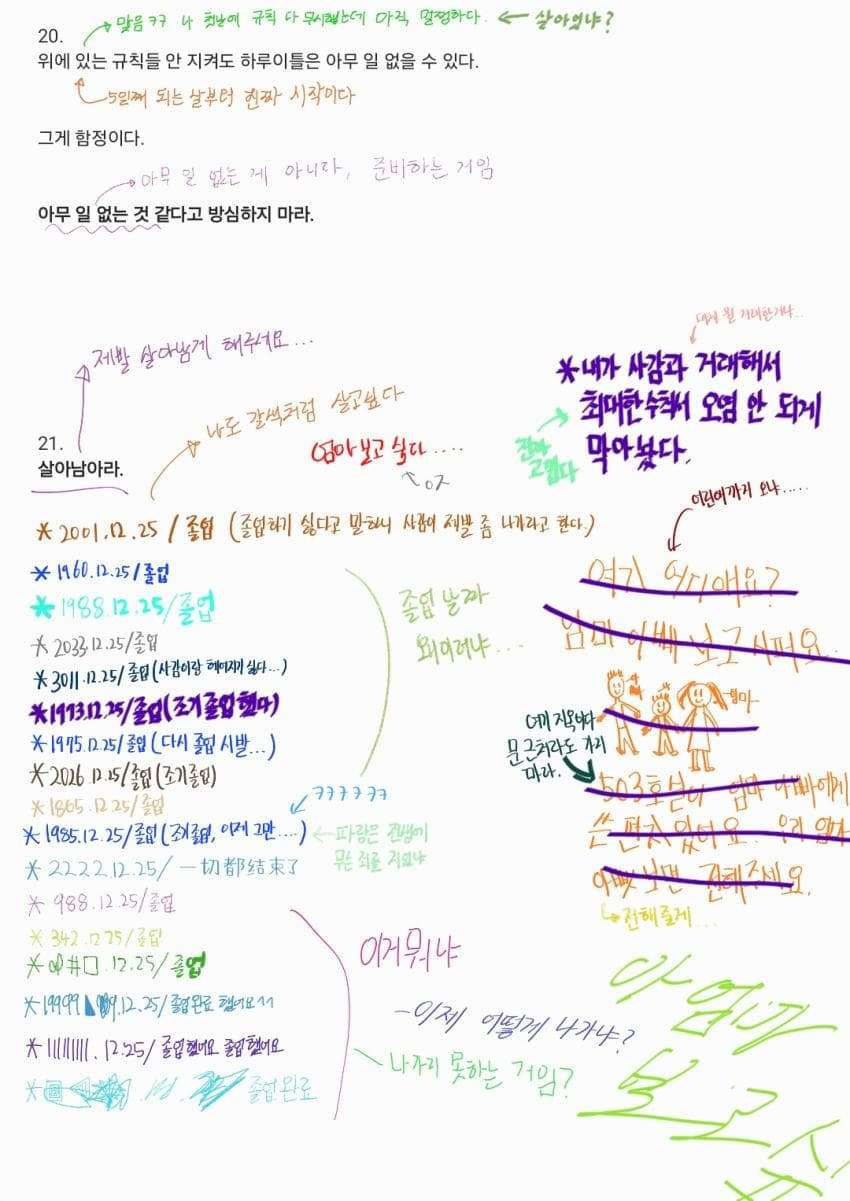 맞음ㅋㅋ 나 첫날에 규칙 다 무시했는데 아직 멀쩡하다. ← 살아있냐?
20.
위에 있는 규칙들 안 지켜도 하루이틀은 아무 일 없을 수 있다.
5일째 되는 날부터 진짜 시작이다
그게 함정이다.
아무 일 없는 게 아니라, 준비하는 거임
아무 일 없는 것 같다고 방심하지 마라.
대체 뭘 거래한거냐..
제발 살아남게 해주세요...
*내가 사감과 거래해서
최대한 수첩서 오염 안 되게
막아놨다.
진짜
고맙다
나도 갈색처럼 살고싶다
21.
살아남아라.
엄마 보고 싶다....
ㅇㅈ
어린애까지 오냐.....
* 2001.12.25 / 졸업 (졸업하기 싫다고 말하니 사감이 제발 좀 나가라고 한다.)
* 1960.12.25/졸업
* 1988.12.25/졸업
* 2033.12.25/졸업
* 3011.12.25/졸업(사감이랑 헤어지기 싫다...)
* 1973.12.25/졸업(조기졸업했다)
* 1975.12.25/졸업(다시 졸업 시발...)
* 2026.12.25/졸업(조기졸업)
* 1865.12.25/졸업
* 1985.12.25/졸업(조기졸업, 이제 그만....)
ㅋㅋㅋㅋㅋ
← 파랑은 전생에
무슨 죄를 지었냐
* 2222.12.25/一切都结束了
* 988.12.25/졸업
* 342.12.25/졸업
* #□.12.25/졸업
* 19999.12.25/졸업완료 했어요^^
* 11111111.12.25/졸업했어요 졸업했어요
* 졸업완료
졸업 날짜
왜이러냐...
여기 어디에요?
엄마 아빠 보고 시퍼요.
아빠
엄마
여기 지옥이다
문 근처라도 가지
마라.
503호실에 엄마 아빠에게
쓴 편지 있어요. 우리 엄마
아빠 보면 전해주세요.
전해줄게...
이거 뭐냐
-이제 어떻게 나가냐?
나가지 못하는 거임?
아 엄마
보고시